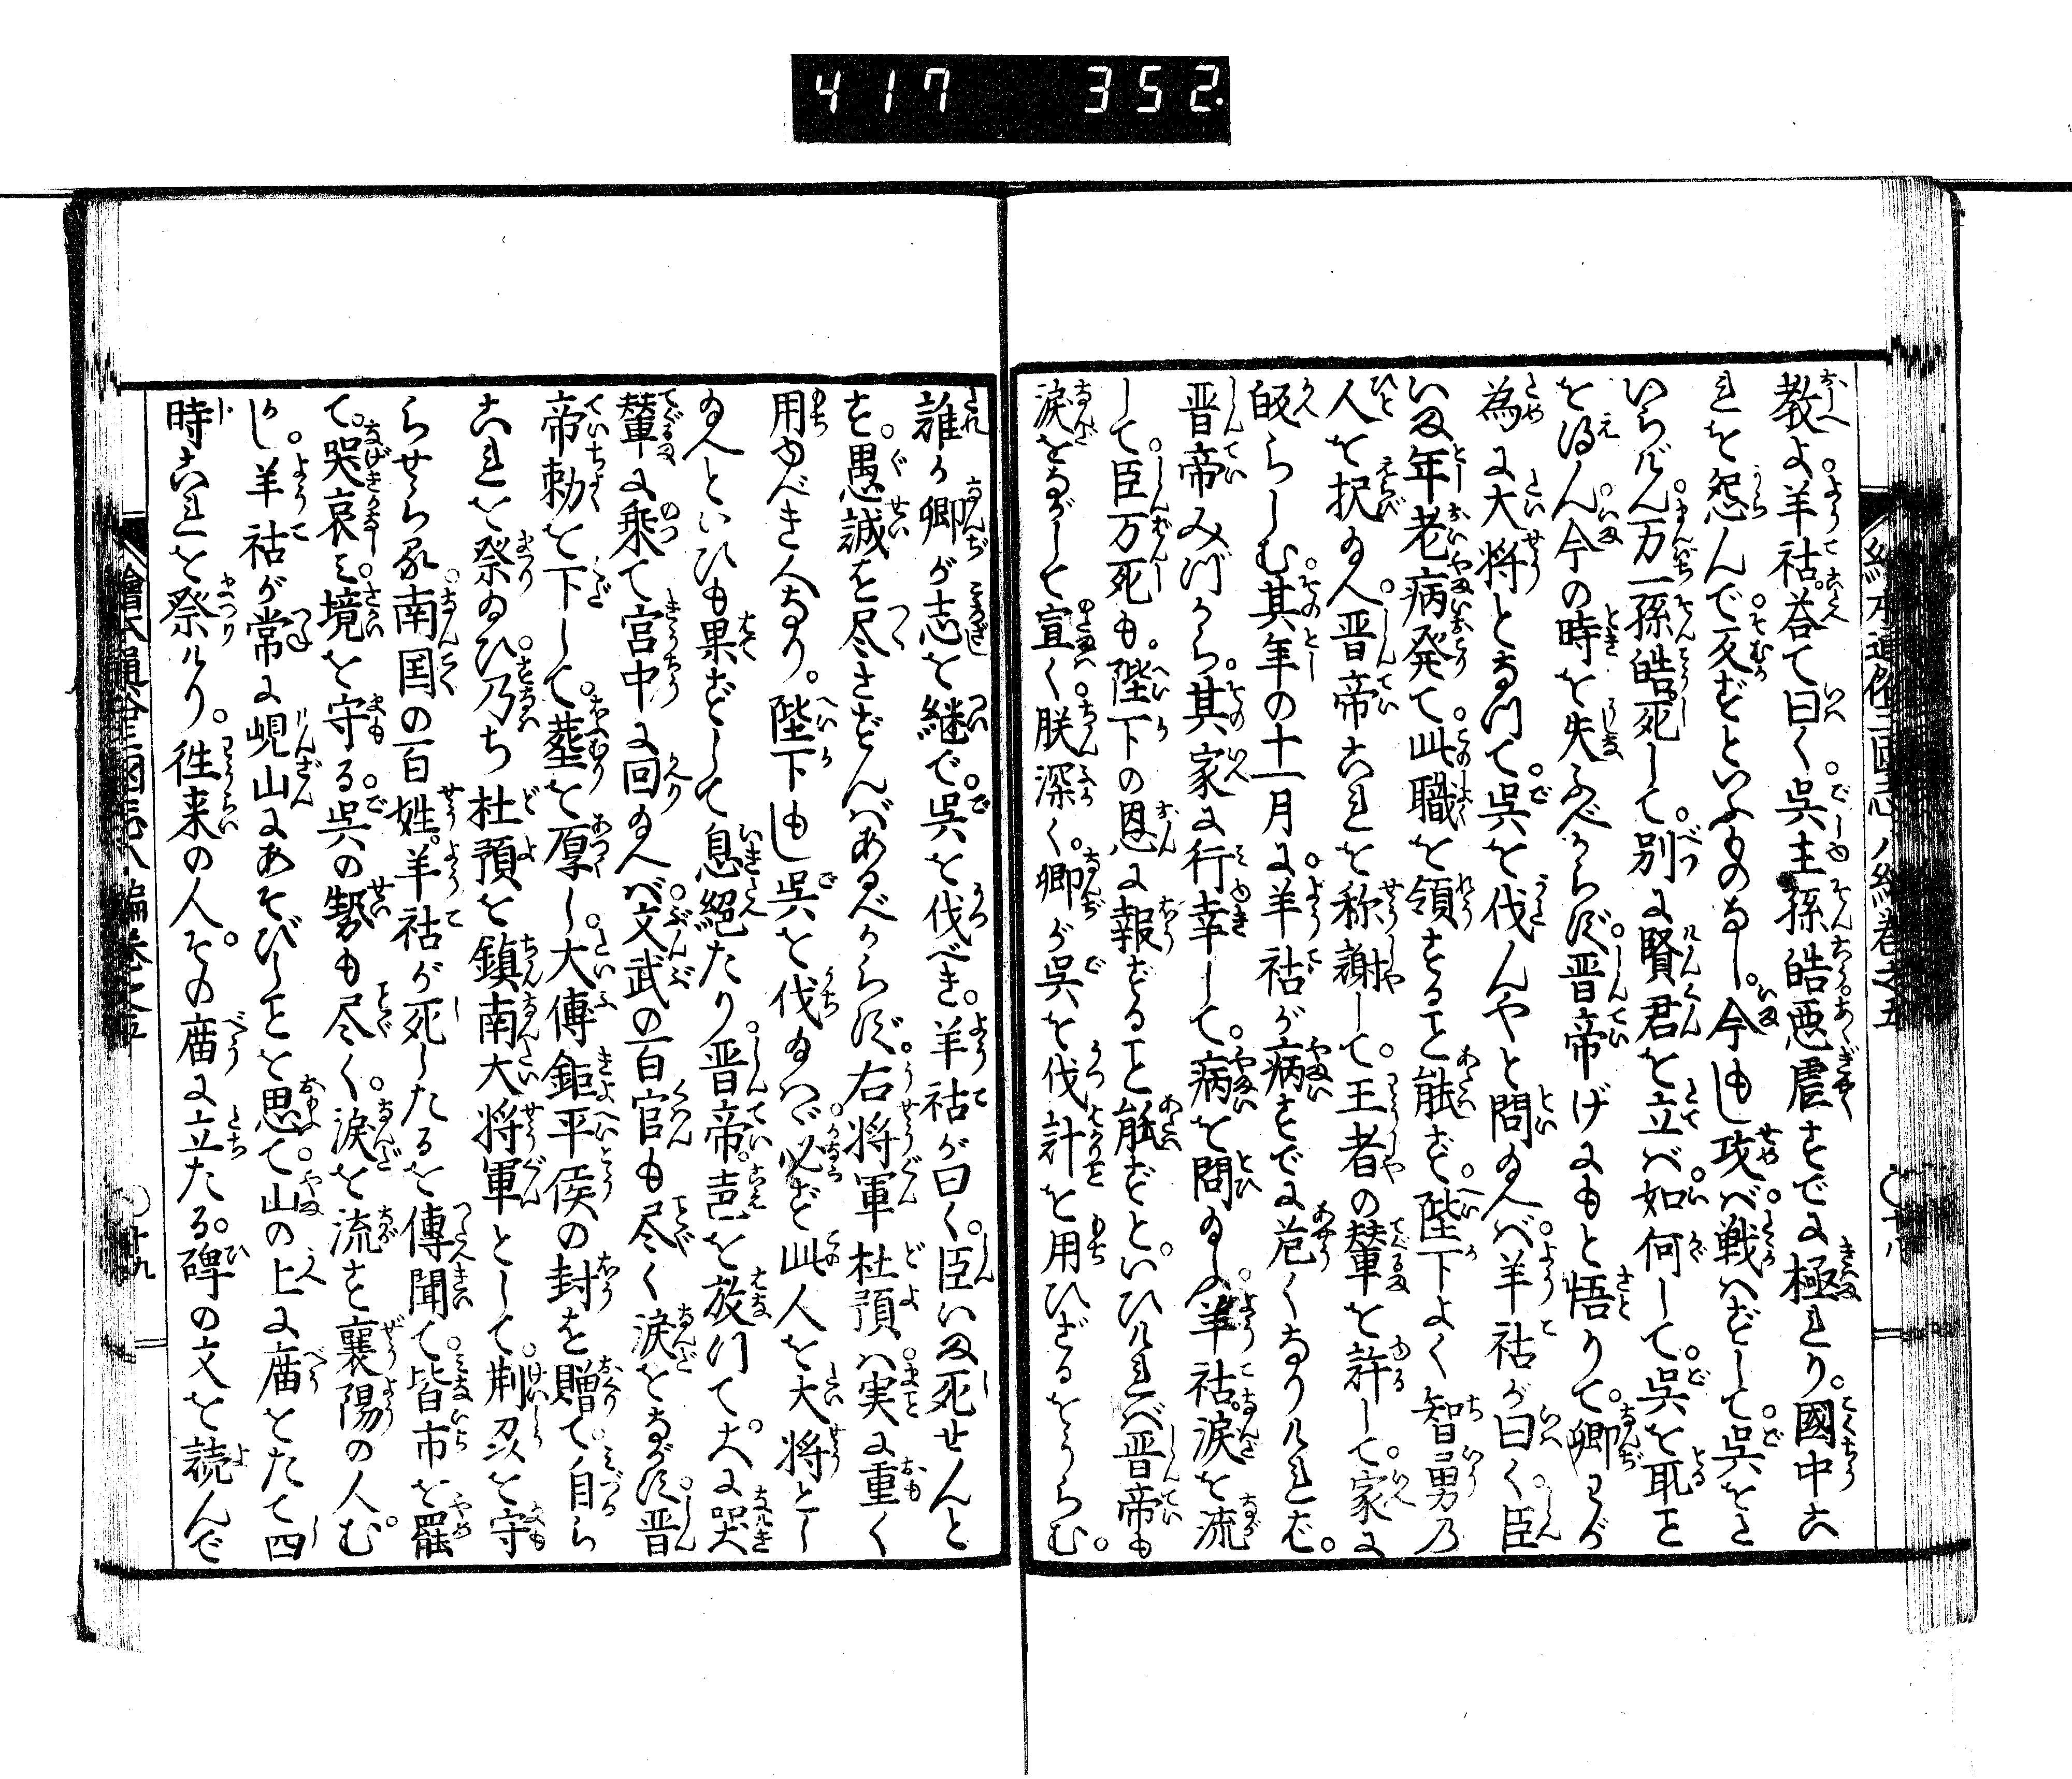 417 352
教よ羊祜荅て曰く呉主孫皓悪虐すでに極れり。國中こ
れを怨んで反ずといふものなし。今もし攻べ戦へずして呉をと
いらずん万一孫皓死して。別に賢君を立バ如何して呉を取こと
を得ん今の時を失ふべからず晋帝げにもと悟りて。卿わが
為に大将となつて呉を伐んやと問給へバ羊祜が曰く臣
いま年老病発て此職を領すること能ず陛下よく智勇乃
人を択み給へ晋帝これを称謝して王者の輦を許して家に
皈らしむ其年の十一月に羊祜が病すでに危くなりけれバ。
晋帝みづから其家に行幸して。病を問給ふ羊祜涙を流
して臣万死も陛下の恩に報ずること能ずといひけれバ晋帝も
涙をながして宣く朕深く卿が呉を伐計を用ひざるをうらむ。
誰か卿が志を継で呉を伐べき羊祜が曰く臣いま死せんと
す。愚誠を尽さずんバあるべからず右将軍杜預ハ実に重く
用ゆべき人なり。陛下もし呉を伐給ハヾ必ず此人を大将とし
給へといひも果ずして息絶たり晋帝声を放つて大に哭
輦に乗て宮中に回給へバ文武の百官も尽く涙をながす晋
帝勅を下して葬を厚し。大傅鉅平侯の封を贈て自ら
これを祭給ひ乃ち杜預を鎮南大将軍として荆州を守
らせらる南国の百姓羊祜が死したるを傳聞て皆市を罷
て哭哀ミ境を守る呉の勢も尽く涙を流す襄陽の人む
かし羊祜が常に峴山にあそびしことを思て山の上に庿をたて四
時これを祭けり。徃来の人その庿に立たる碑の文を読んで